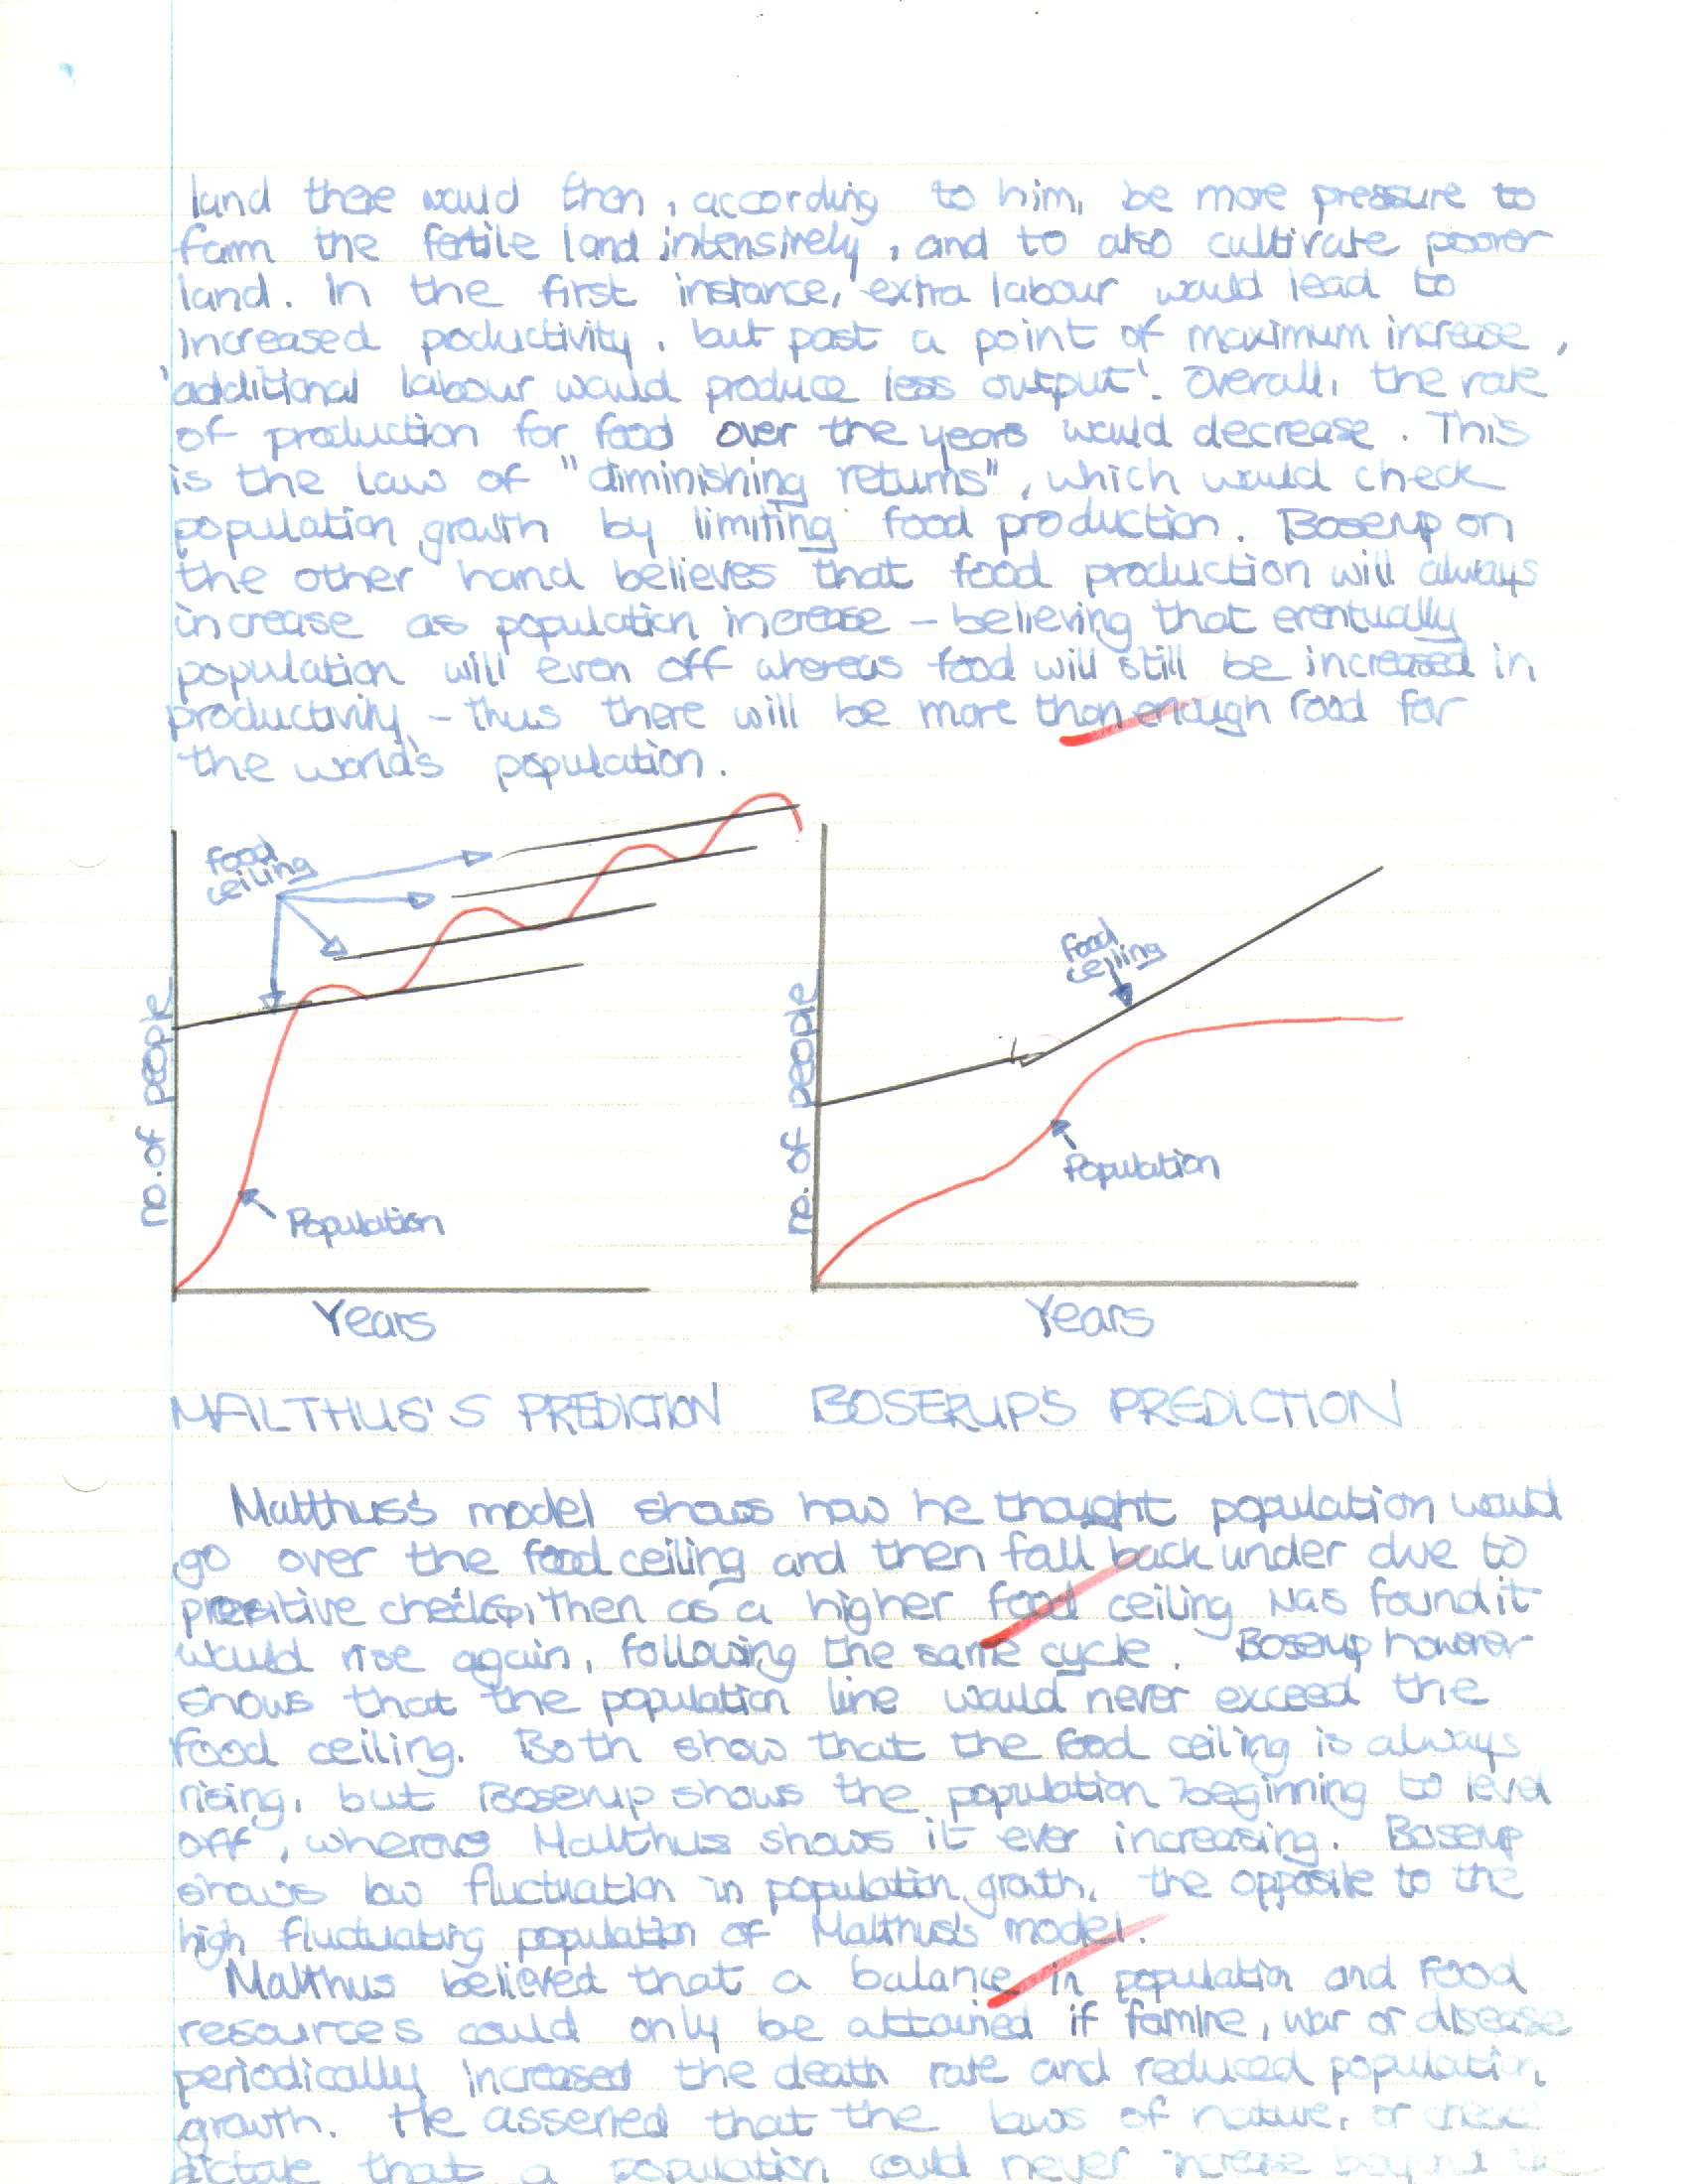 land there would then, according to him, be more pressure to
farm the fertile land intensively, and to also cultivate poorer
land. In the first instance, extra labour would lead to
increased poductivity, but past a point of maximum increase,
'additional labour would produce less output'. Overall, the rate
of production for food over the years would decrease. This
is the law of "diminishing returns", which would check
population growth by limiting food production. Boserup on
the other hand believes that food production will always
increase as population increase - believing that eventually
population will even off whereas food will still be increased in
productivity - thus there will be more than enough food for
the world's population.
food
ceiling
no. of people
Population
Years
food
ceiling
no. of people
Population
Years
MALTHUS'S PREDICTION BOSERUP'S PREDICTION
Malthus's model shows how he thought population would
go over the food ceiling and then fall back under due to
positive checks, then as a higher food ceiling was found it
would rise again, following the same cycle. Boserup however
shows that the population line would never exceed the
food ceiling. Both show that the food ceiling is always
rising, but Boserup shows the population beginning to level
off, whereas Malthus shows it ever increasing. Boserup
shows low fluctuation in population growth, the opposite to the
high fluctuating population of Malthus's model.
Malthus believed that a balance in population and food
resources could only be attained if famine, war or disease
periodically increased the death rate and reduced population
growth. He asserted that the laws of nature, or checks
dictate that a population could never increase beyond the